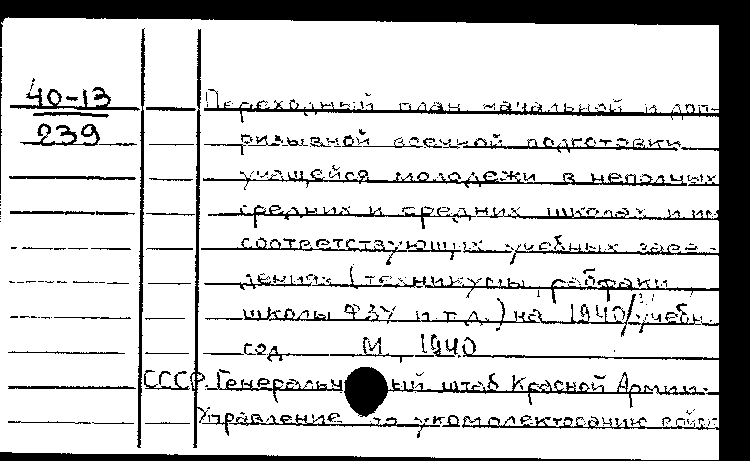 40-13
239
Переходный план начальной и доп-
ризывной военной подготовки
учащейся молодежи в неполных
средних и средних школах и им
соответствующих учебных заве-
дениях (техникумы, рабфаки,
школы ФЗУ и т.д.) на 1940/учебн.
год М., 1940
СССР. Генеральный штаб Красной Армии.
Управление по укомплектованию войск